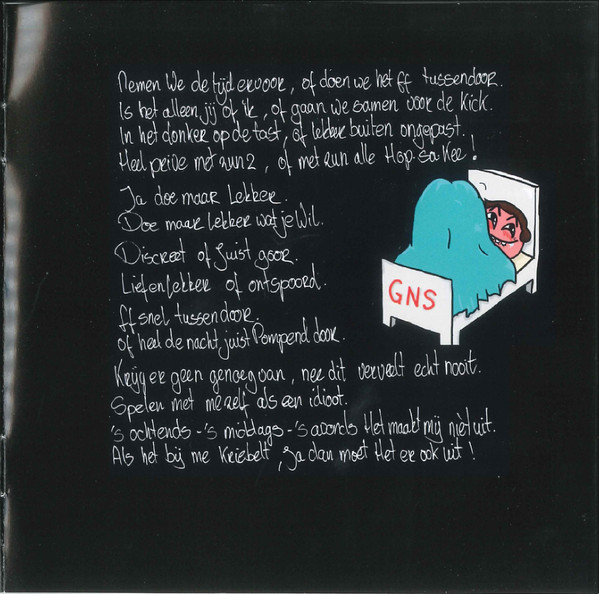 Nemen We de tijd ervoor, of doen we het ff tussendoor.
Is het alleen jij of ik, of gaan we samen voor de kick.
In het donker op de tast, of lekker buiten ongepast.
Heel privé met zun 2, of met zun alle Hop-sa-kee!
Ja doe maar lekker.
Doe maar lekker wat je wil.
Discreet of juist goor.
Lief en lekker of ontspoord.
ff snel tussendoor.
of heel de nacht juist Pompend door.
GNS
Krijg er geen genoeg van, nee dit verveelt echt nooit.
Spelen met mezelf als een idioot.
's ochtends -'s middags -'s avonds Het maakt mij niet uit.
Als het bij me kriebelt, ja dan moet Het er ook uit!